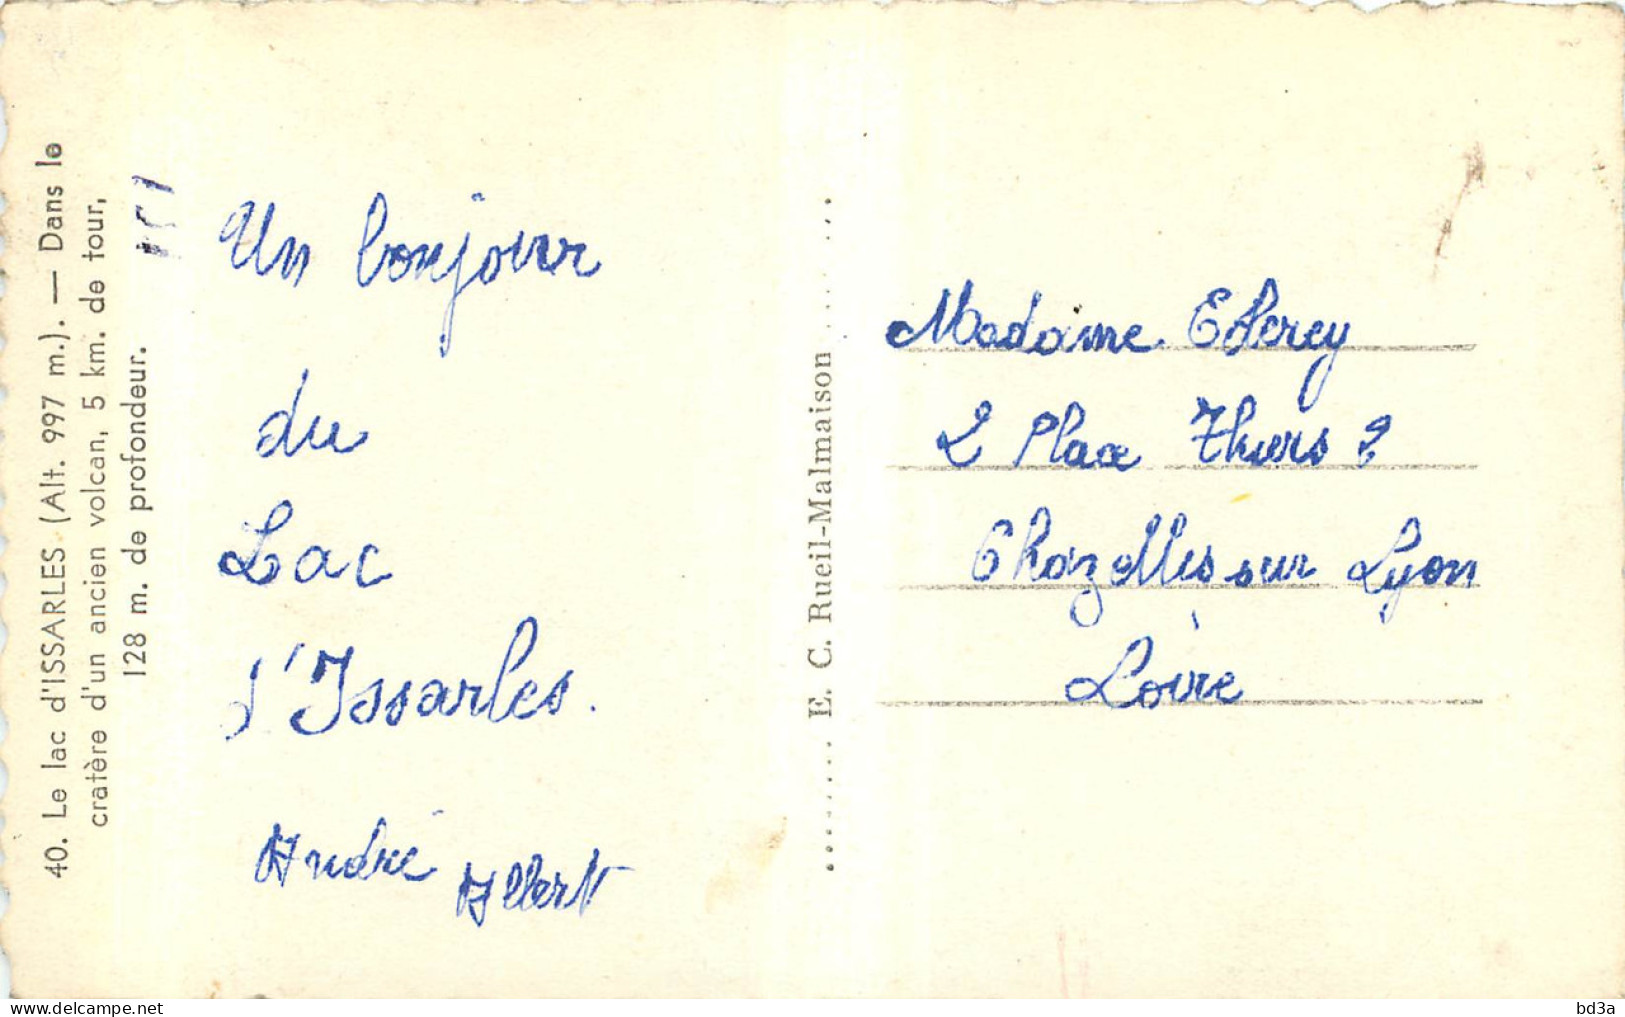 40. Le lac d'ISSARLES (Alt. 997 m.). — Dans le
cratère d'un ancien volcan, 5 km. de tour,
128 m. de profondeur.
Un bonjour
du
Lac
d'Issarles.
André Albert
E. C. Rueil-Malmaison
Madame
2 Place Thiers 2
Chazelles sur Lyon
Loire
www.delcampe.net
bd3a